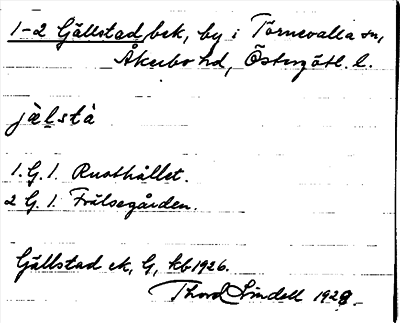 1-2 Gällstad bek, by i Törnevalla sn,
Åkerbo hd, Östergötl. l.
jälstà
1. G. 1. Rusthållet.
2 G. 1. Frälsegården.
Gällstad ek, G, kb 1926.
Thord Lindell 1929.